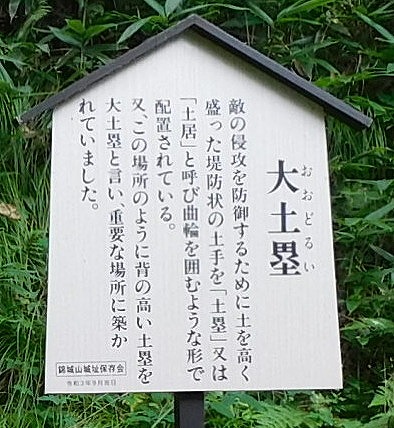 大土塁
おおどるい
敵の侵攻を防御するために土を高く
盛った堤防状の土手を「土塁」又は
「土居」と呼び曲輪を囲むような形で
配置されている。
又、この場所のように背の高い土塁を
大土塁と言い、重要な場所に築か
れていました。
錦城山城址保存会
令和3年9月吉日